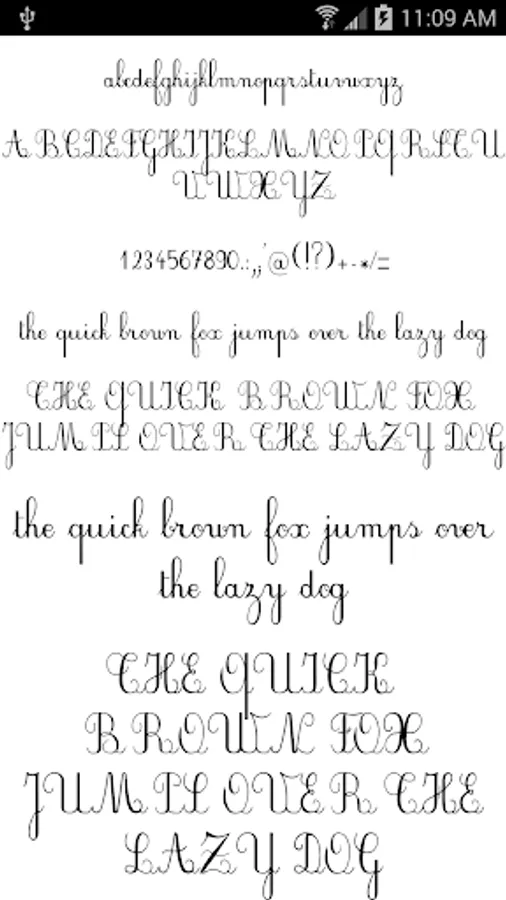 11:09 AM
abcdefghijklmnopqrstuvwxyz
ABCDEFGHIJKLMNOPQRSTU
VWXYZ
1234567890.:,;'@(!?)+-*/=
the quick brown fox jumps over the lazy dog
THE QUICK BROWN FOX
JUMPS OVER THE LAZY DOG
the quick brown fox jumps over
the lazy dog
THE QUICK
BROWN FOX
JUMPS OVER THE
LAZY DOG